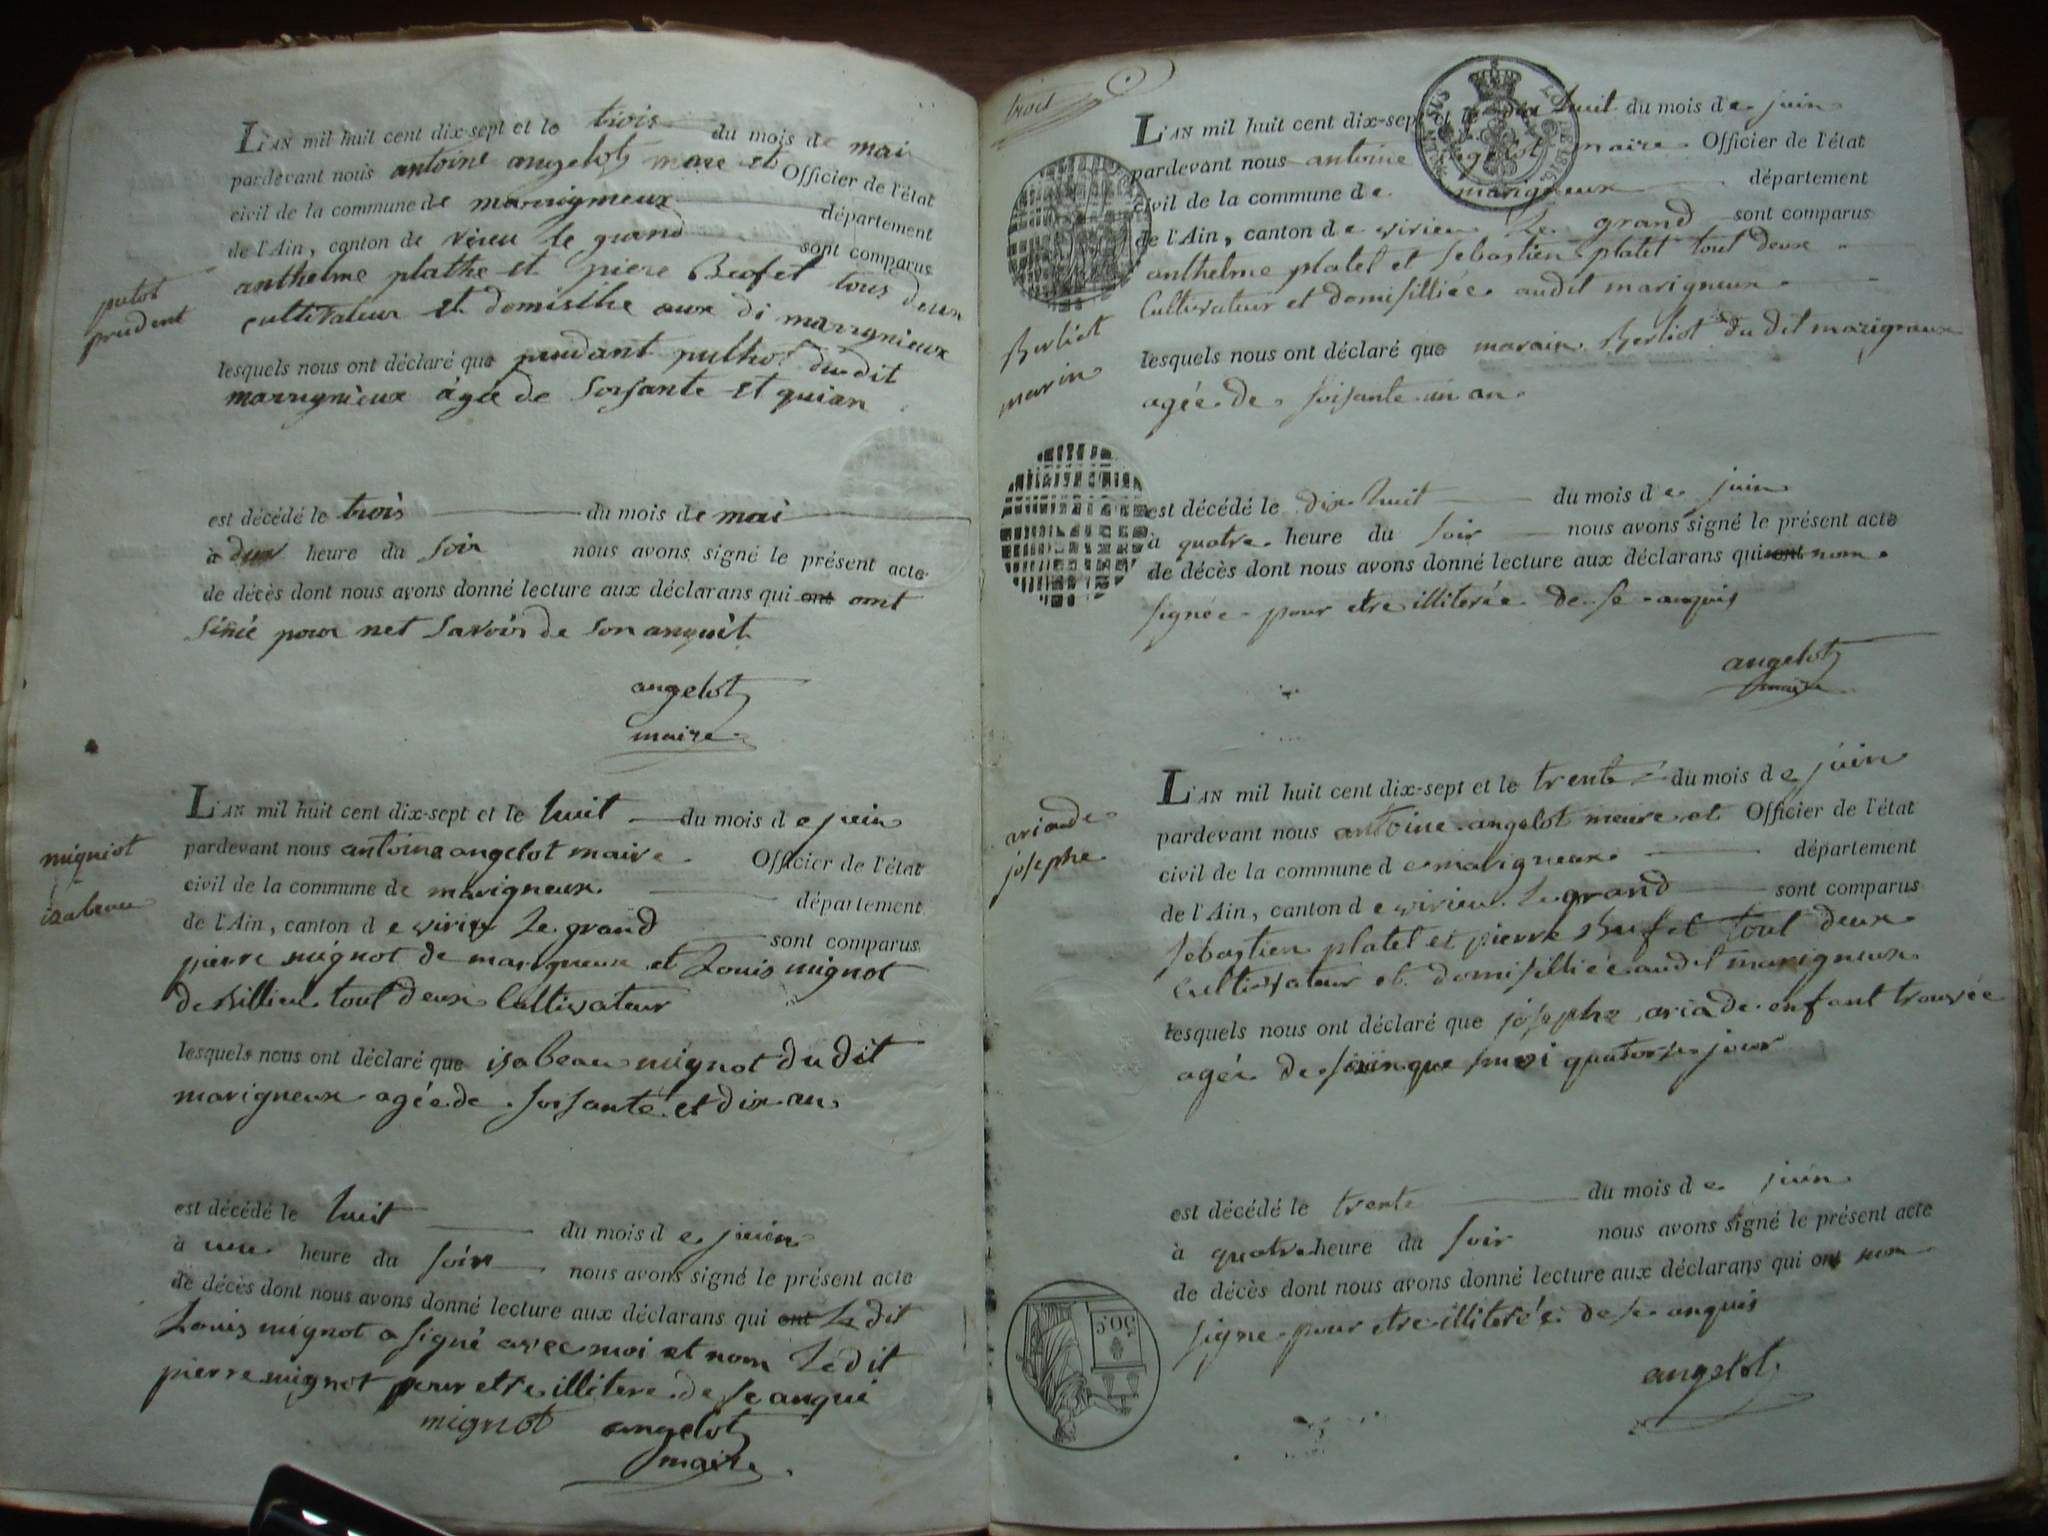 putot
prudent
L'AN mil huit cent dix-sept et le trois du mois de mai
pardevant nous antoine angelot mare et Officier de l'état
civil de la commune de marrigmeux département
de l'Ain, canton de vireu le grand sont comparus
anthelme plathe et piere Bufet tous deux
cultivateur et domisilie aux di marrynieux
lesquels nous ont déclaré que prudant putho dudit
marrynieux âgée de soisante et quian
est décédé le trois du mois de mai
à heure du soir nous avons signé le présent acte
de décès dont nous avons donné lecture aux déclarans qui ont omt
sinié pour net savoir de son anquit
angelot
maire
migniot
izabeau
L'AN mil huit cent dix-sept et le huit du mois de juin
pardevant nous antoine angelot maire Officier de l'état
civil de la commune de marigneux département
de l'Ain, canton de virieu Le grand sont comparus
pierre mignot de marigneux et Louis mignot
de Billieu tout deux Cultivateur
lesquels nous ont déclaré que isabeau mignot du dit
marigneux agée de soisante et dix an
est décédé le huit du mois de juin
à une heure du soir nous avons signé le présent acte
de décès dont nous avons donné lecture aux déclarans qui ont Le dit
Louis mignot a signé avec moi et nom Le dit
pierre mignot pour etre illitere de se anqui
mignot angelot
maire
trois
L'AN mil huit cent dix-sept et le dix huit du mois de juin
pardevant nous antoine angelot maire Officier de l'état
civil de la commune de marigneux département
de l'Ain, canton de virieu Le grand sont comparus
anthelme platel et sebastien platel tout deux
Cultivateur et domisilliée audit marigneux
Berliot
marin
lesquels nous ont déclaré que marain Berliot du dit marigneux
agée de soisante un an
est décédé le dix huit du mois de juin
à quatre heure du soir nous avons signé le présent acte
de décès dont nous avons donné lecture aux déclarans qui ont nom
signée pour etre illiterée de se anquis
angelot
maire
ariade
josephe
L'AN mil huit cent dix-sept et le trente du mois de juin
pardevant nous antoine angelot maire et Officier de l'état
civil de la commune de marigneux département
de l'Ain, canton de virieu Le grand sont comparus
sebastien platel et pierre Bufet tout deux
Cultivateur et domisilliée audit marigneux
lesquels nous ont déclaré que josephe ariade enfant trouvée
agée de sinque moi quatorse jour
est décédé le trente du mois de juin
à quatre heure du soir nous avons signé le présent acte
de décès dont nous avons donné lecture aux déclarans qui ont nom
signe pour etre illiterée de se anquis
50c
angelot